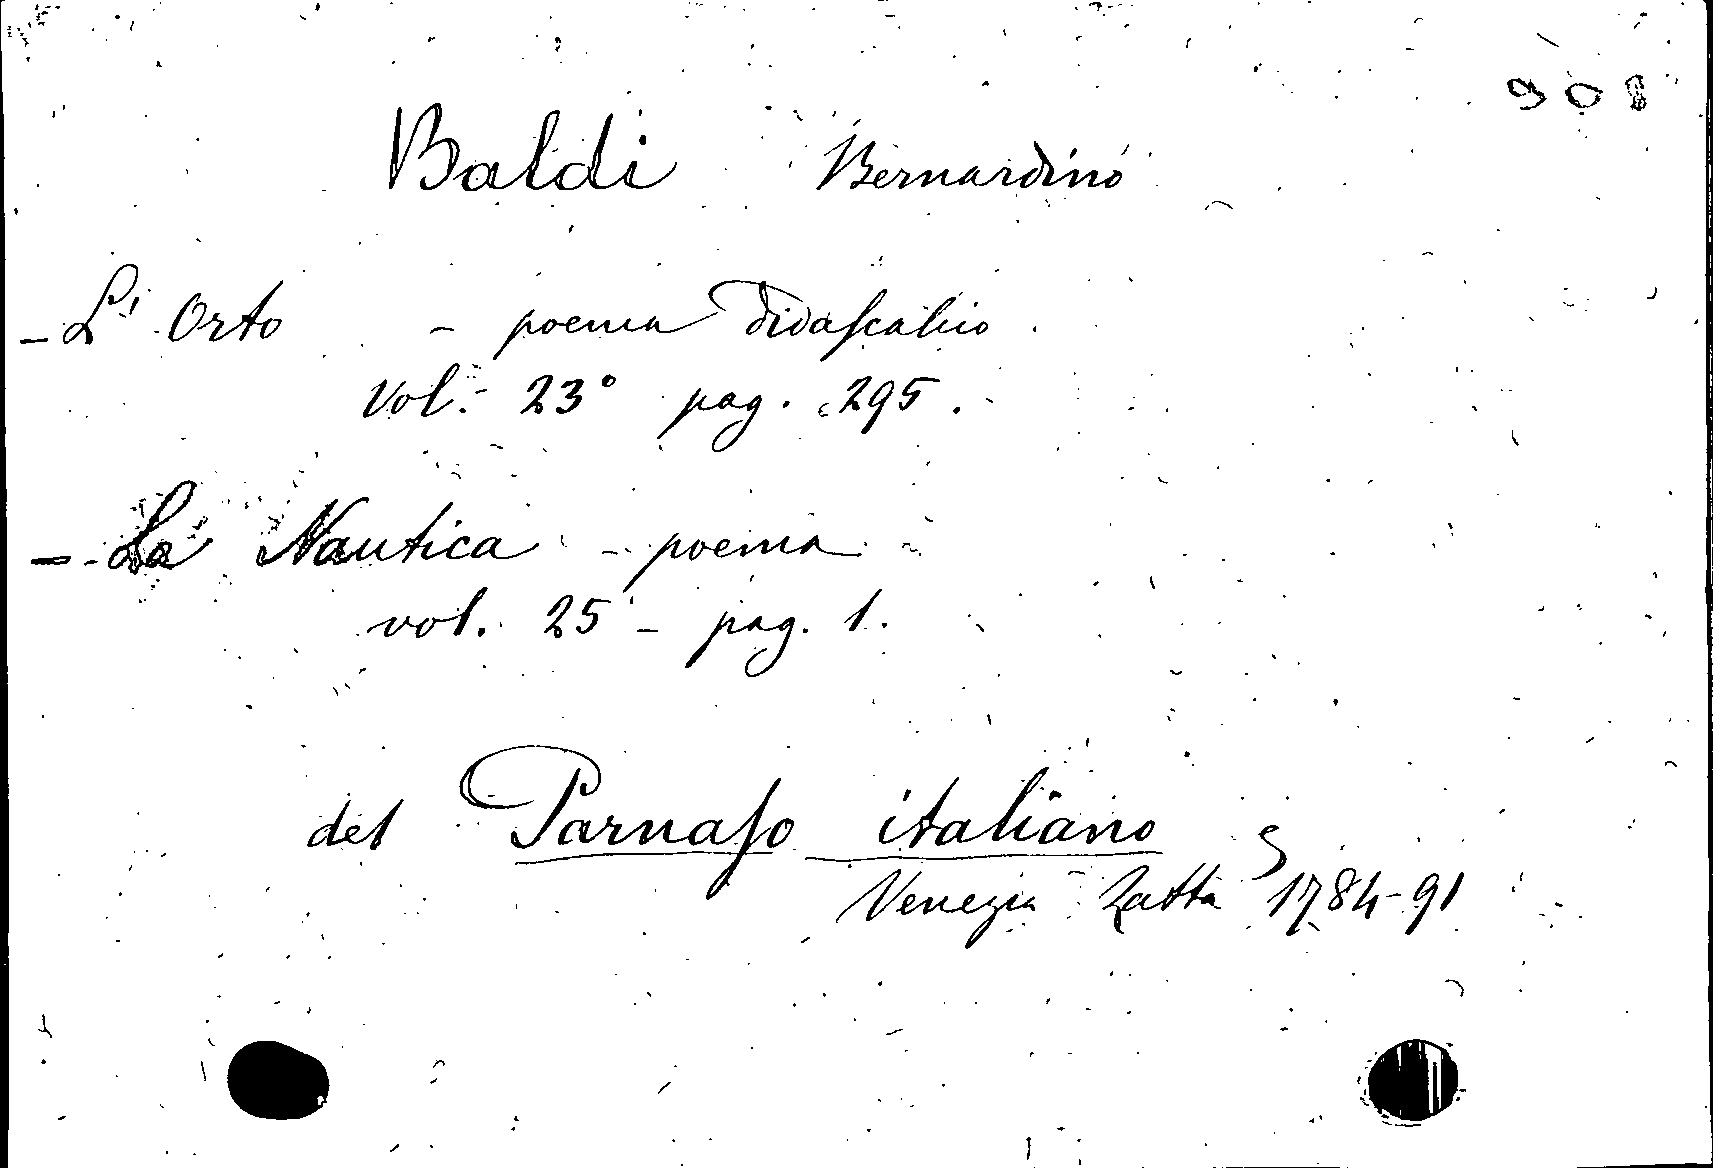 908
Baldi Bernardino
- L' Orto - poema didascalico
Vol. 23° pag. 295.
- La Nautica - poema
vol. 25 - pag. 1.
del Parnaso italiano
Venezia Zatta 1784-91